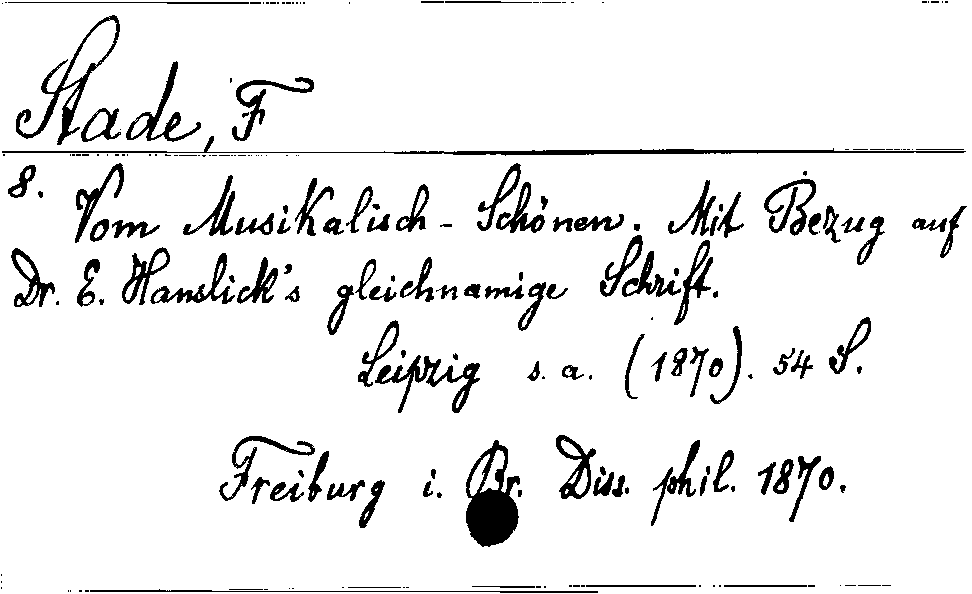 Stade, F
8. Vom Musikalisch-Schönen. Mit Bezug auf
Dr. E. Hanslick's gleichnamige Schrift.
Leipzig s. a. (1870). 54 S.
Freiburg i. Br. Diss. phil. 1870.